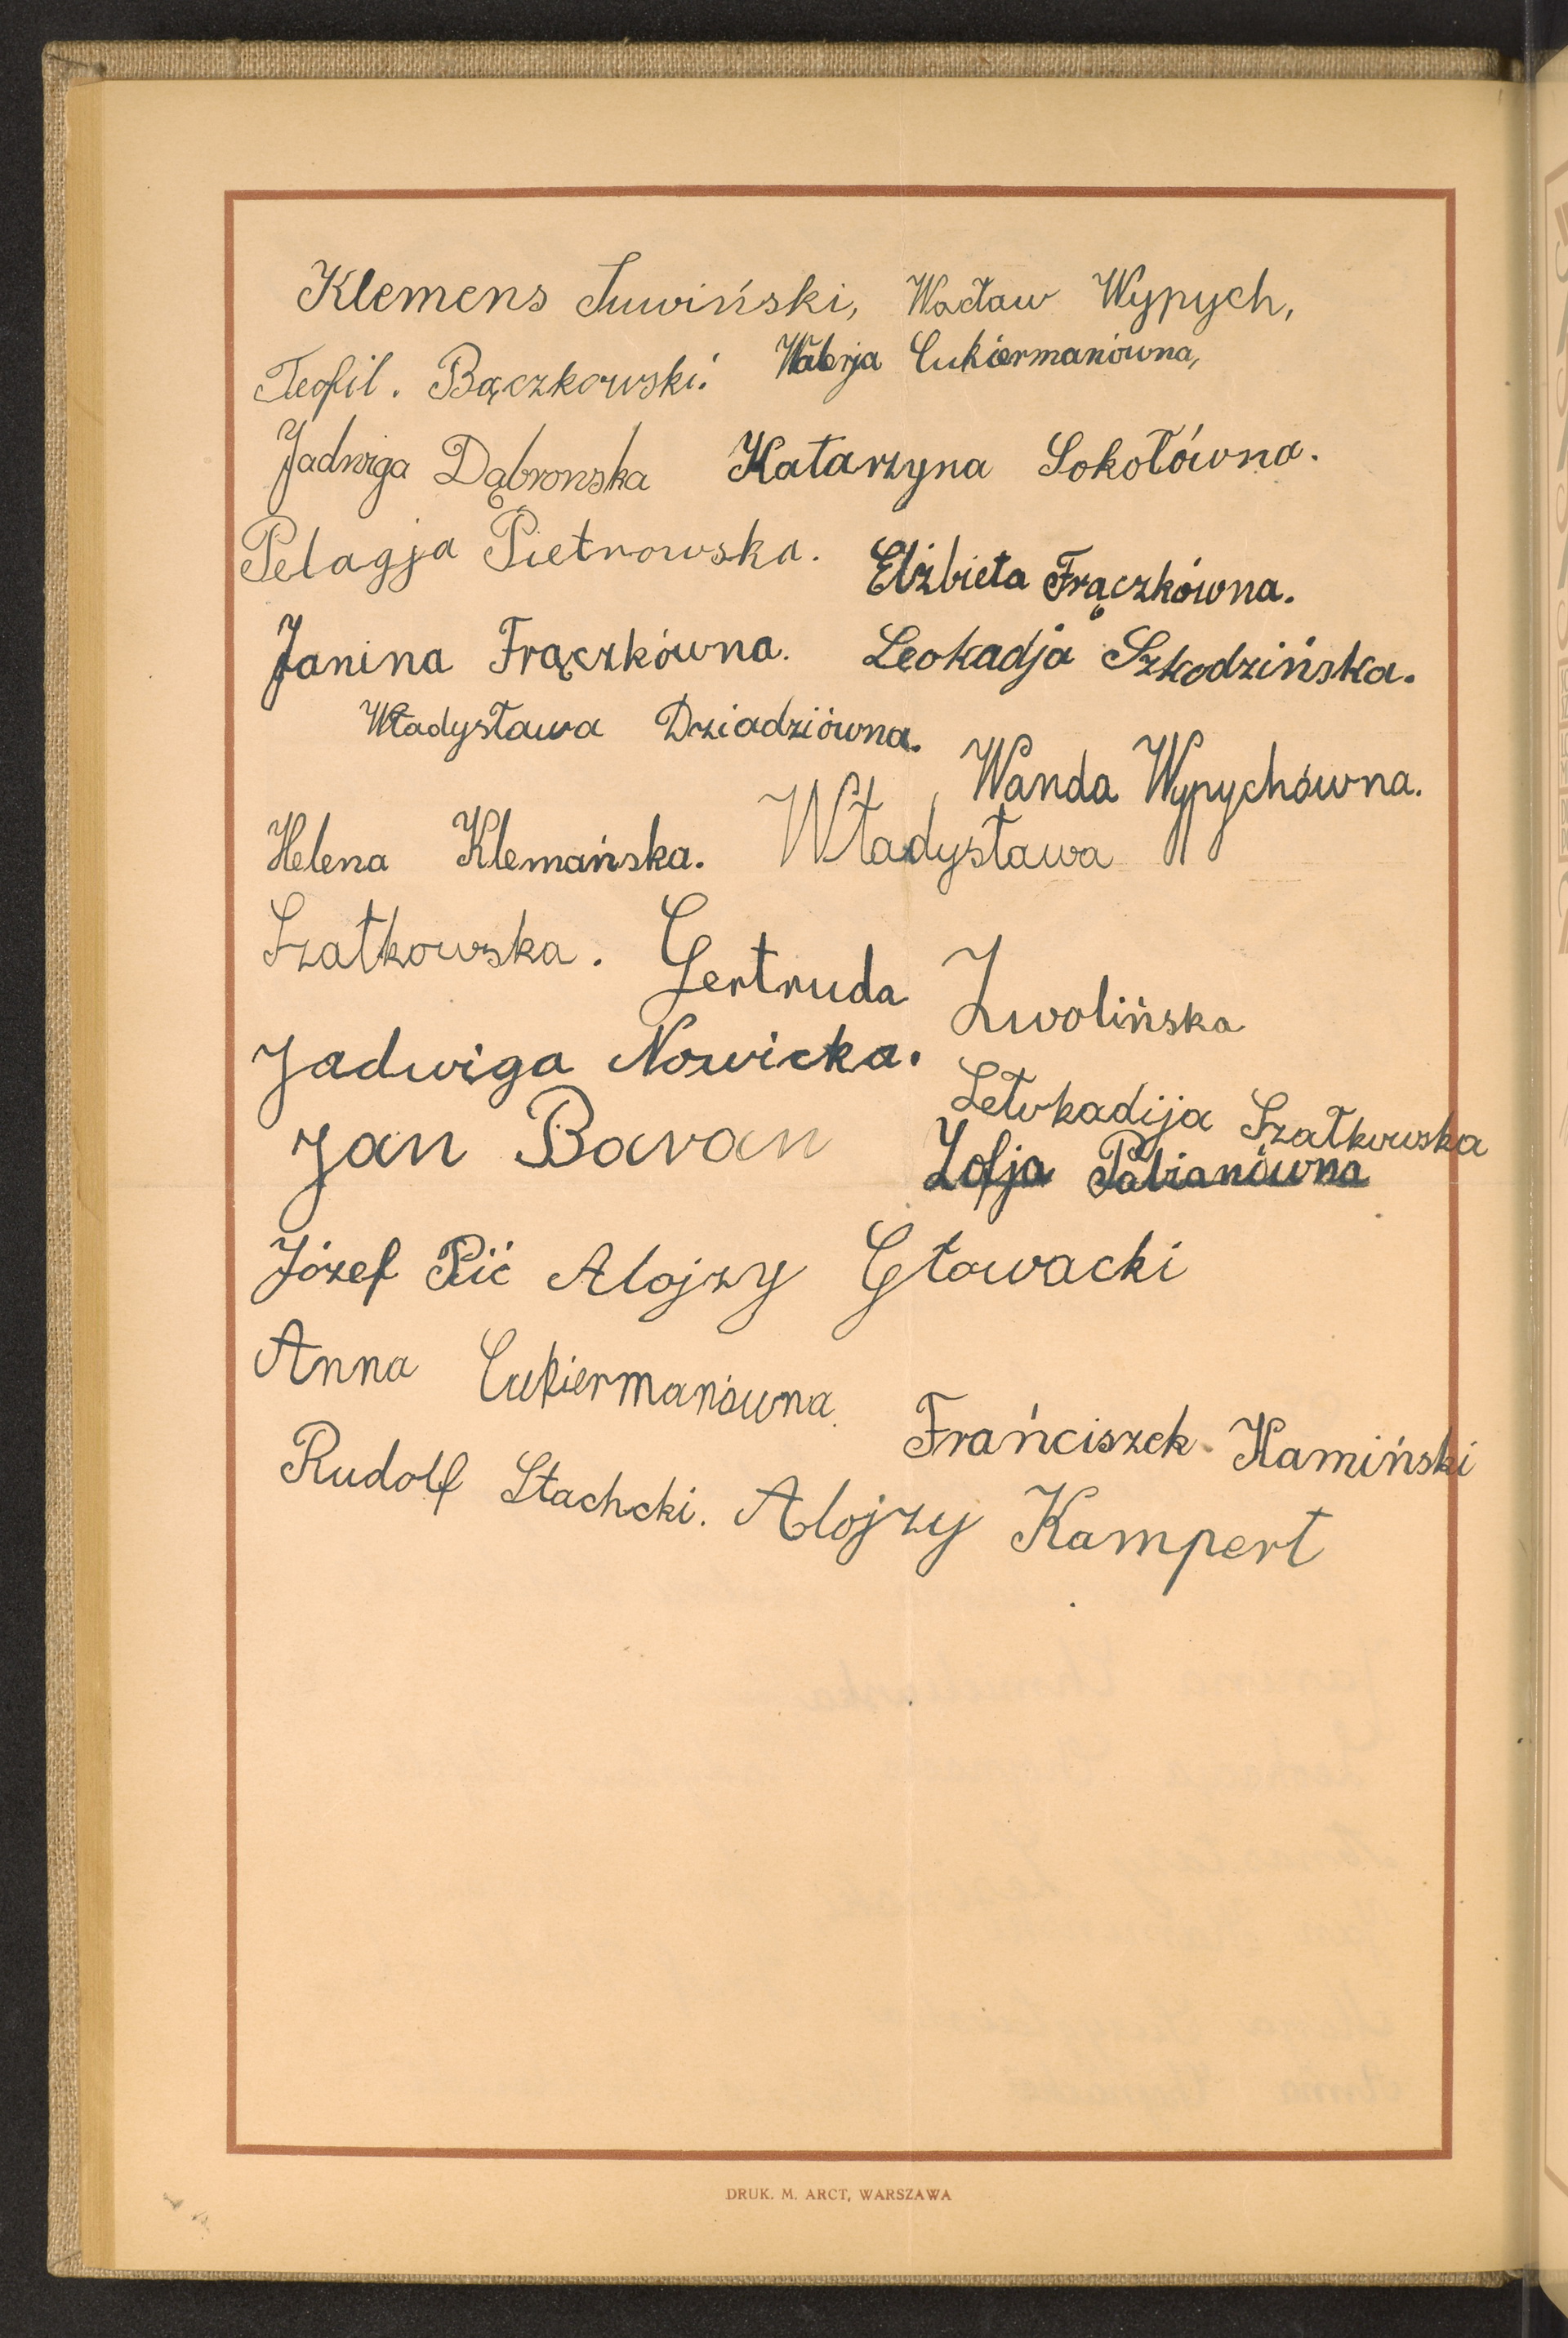 Klemens Tuwiński, Wacław Wypych,
Teofil. Bączkowski. Walerja Cukiermanówna,
Jadwiga Dąbrowska Katarzyna Sokołówna.
Pelagja Pietrowska. Elżbieta Frączkówna.
Janina Frączkówna. Leokadja Szkodzińska.
Władysława Dziadziówna. Wanda Wypychówna.
Helena Klemańska. Władysława
Szatkowska. Gertruda Zwolińska
Jadwiga Nowicka. Szatkowska
Jan Baran Zofja Pabianówna
Józef Alojzy Głowacki
Anna Cukiermanówna. Frańciszek Kamiński
Rudolf Stachcki. Alojzy Kampert
DRUK. M. ARCT, WARSZAWA